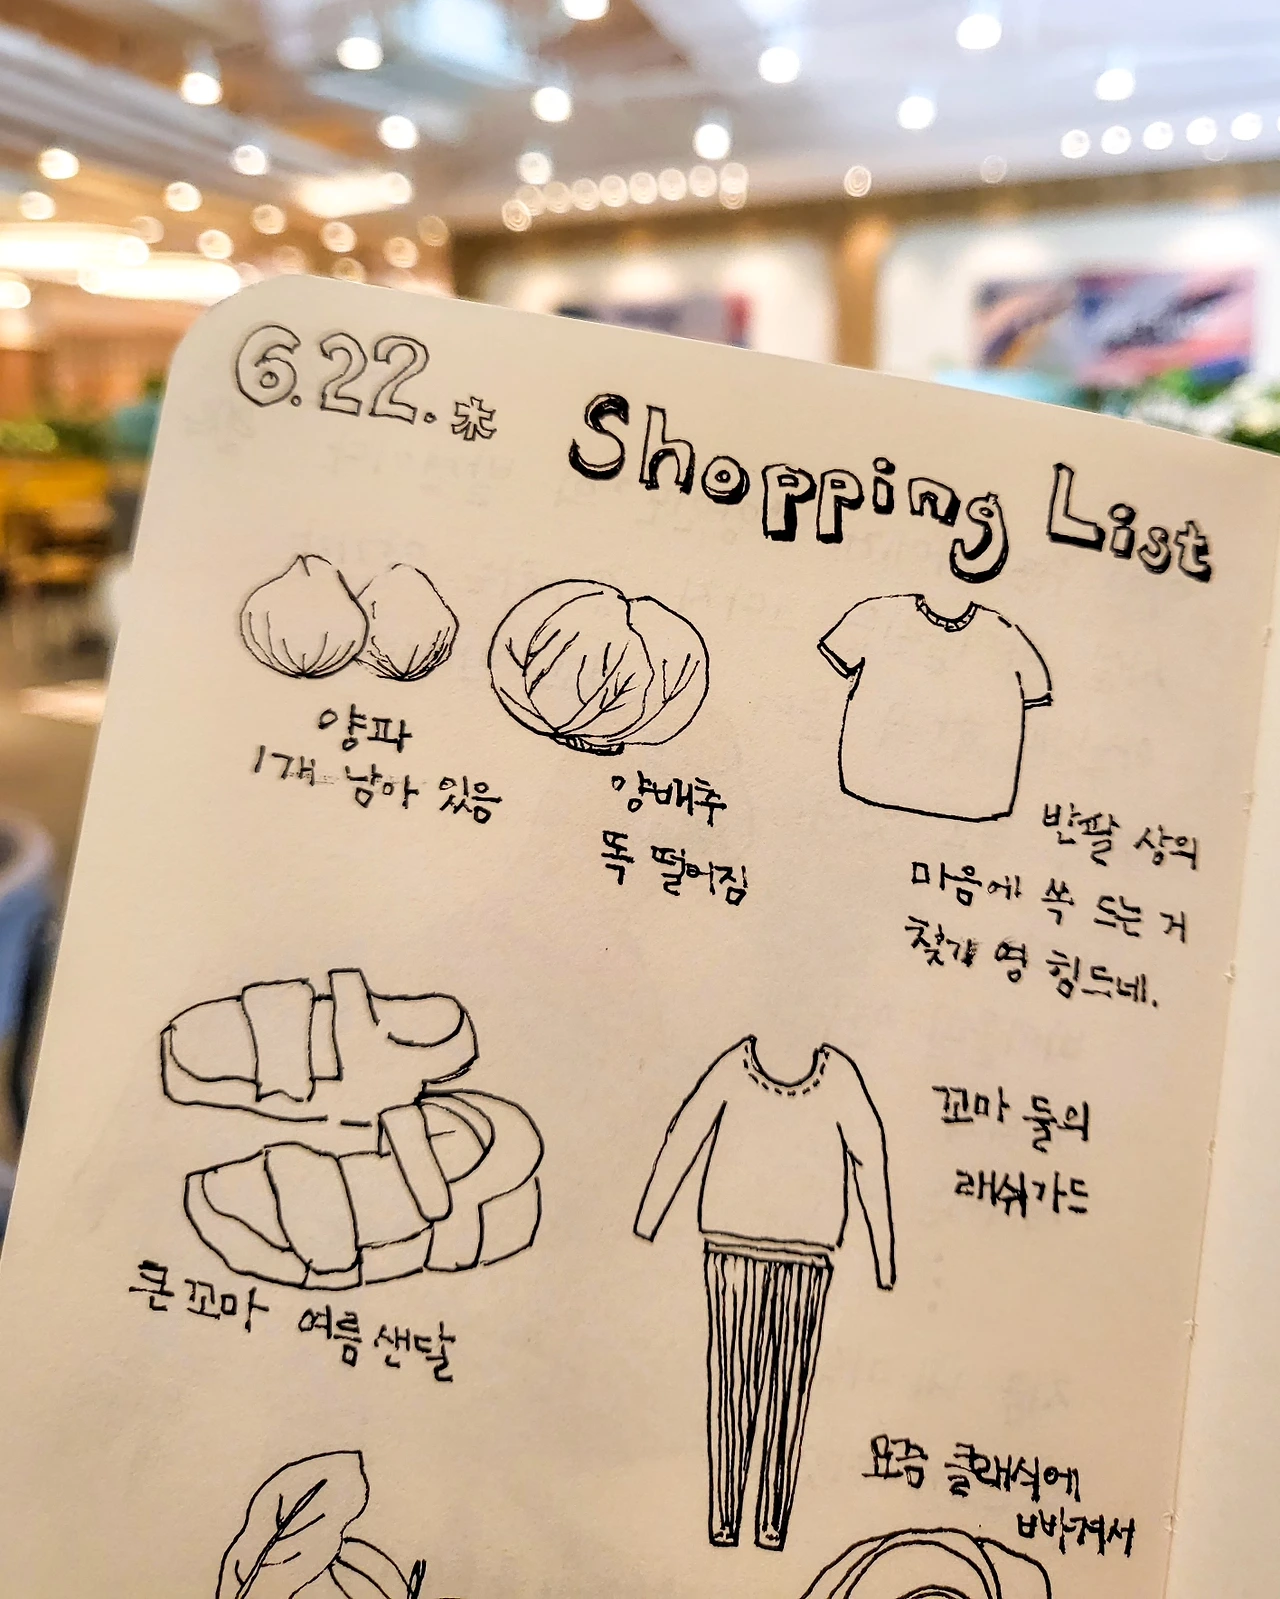 6.22.木 Shopping List
양파
1개 남아 있음
양배추
똑 떨어짐
반팔 상의
마음에 쏙 드는 거
찾기 영 힘드네.
큰 꼬마 여름 샌달
꼬마 둘의
래쉬가드
요즘 클래식에
빠져서